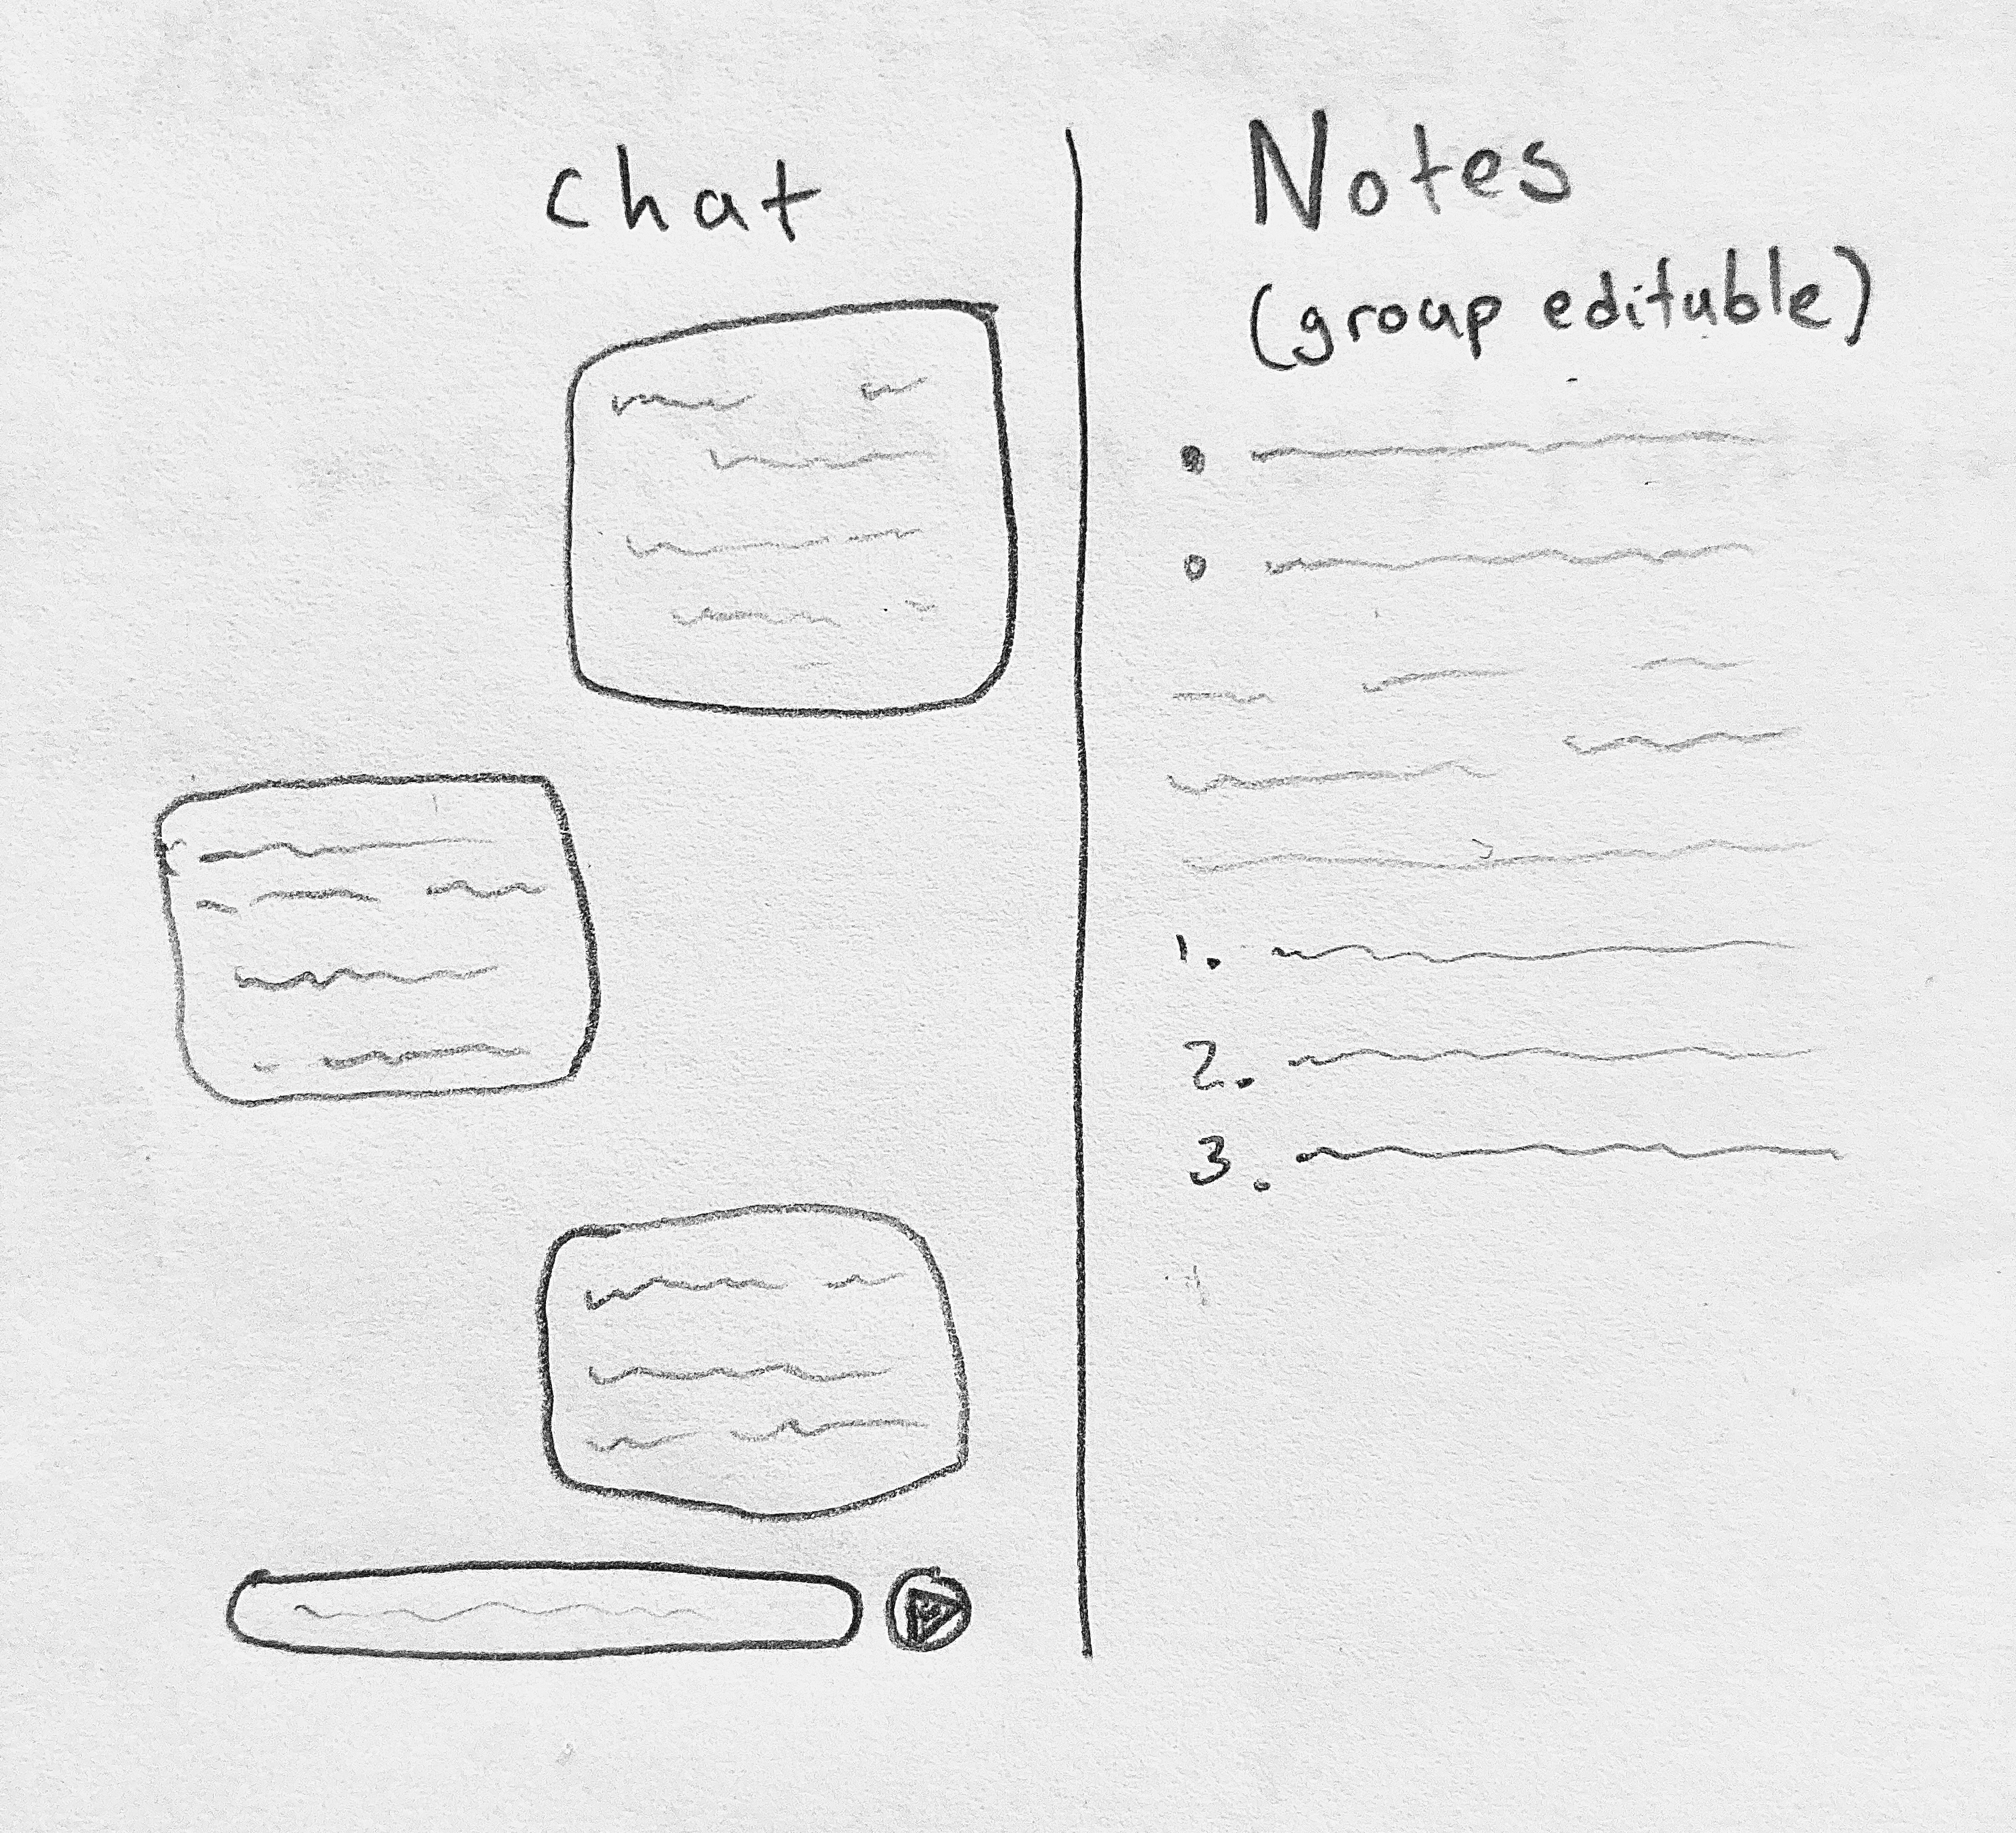 Chat
Notes
(group edituble)
1.
2.
3.